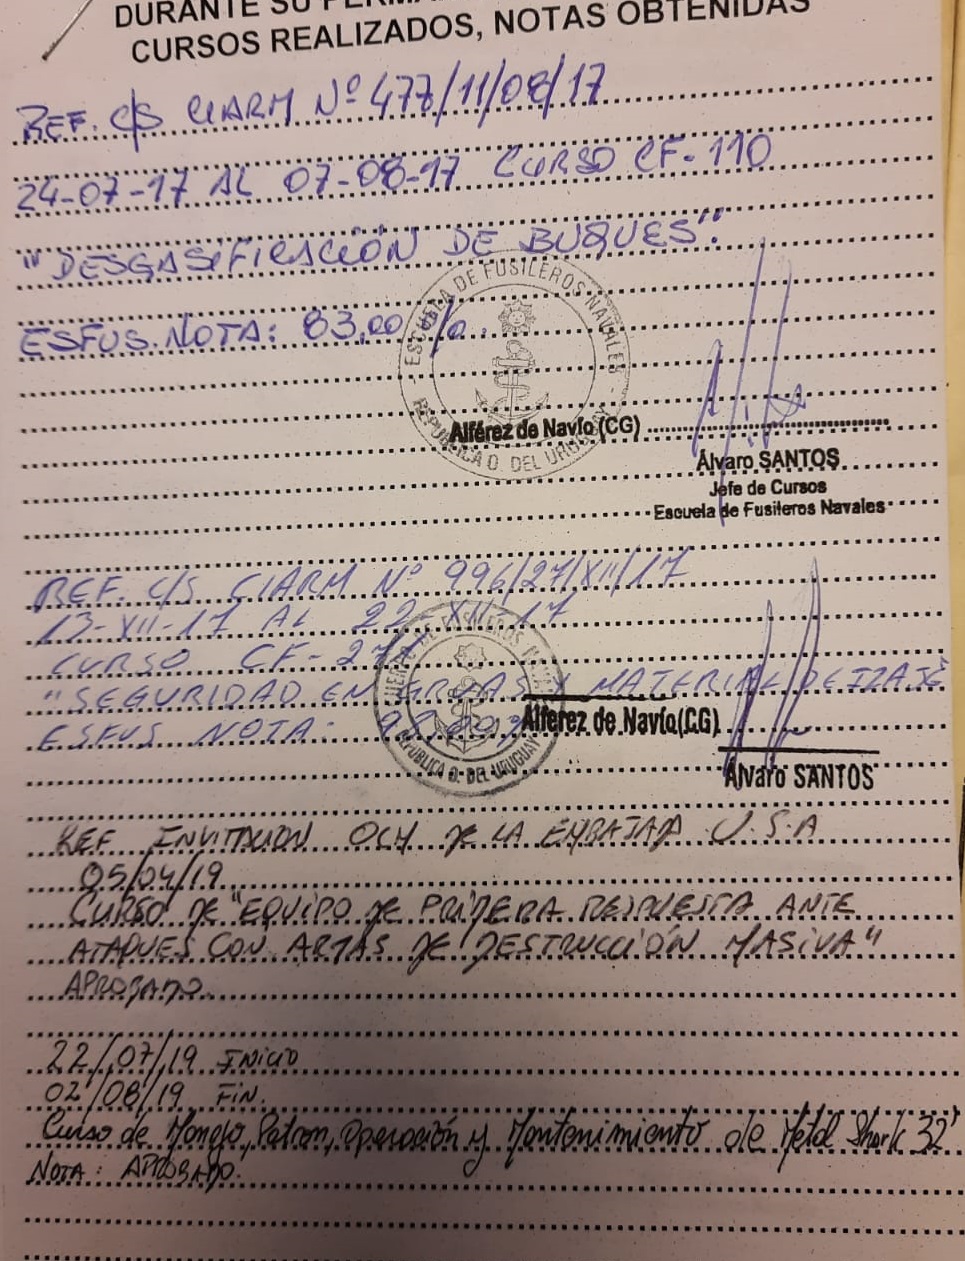 DURANTE SU
CURSOS REALIZADOS, NOTAS OBTENIDAS
REF. C/S CIARM Nº 477/11/08/17
24-07-17 AL 07-08-17 CURSO CF-110
"DESGASIFICACIÓN DE BUQUES".
ESFUS NOTA: 83,00 %.
ESCUELA DE FUSILEROS NAVALES
REPUBLICA O. DEL URUGUAY
Alférez de Navío (CG)
Álvaro SANTOS
Jefe de Cursos
Escuela de Fusileros Navales
REF. C/S CIARM Nº 996/27/XII/17
13-XII-17 AL 22-XII-17
CURSO CF-
"SEGURIDAD EN GRÚAS Y MATERIAL DE IZAJE
ESFUS NOTA:
REPUBLICA O. DEL URUGUAY
Alférez de Navío (CG)
Álvaro SANTOS
REF INVITACION DE LA EMBAJADA U.S.A
05/04/19
CURSO DE "EQUIPO DE PRIMERA RESPUESTA ANTE
ATAQUES CON ARMAS DE DESTRUCCIÓN MASIVA"
APROBADO.
22/07/19 INICIO
02/08/19 FIN.
Curso de Manejo, Patron, Operación y Mantenimiento de Metal Shark 32'
NOTA: APROBADO.